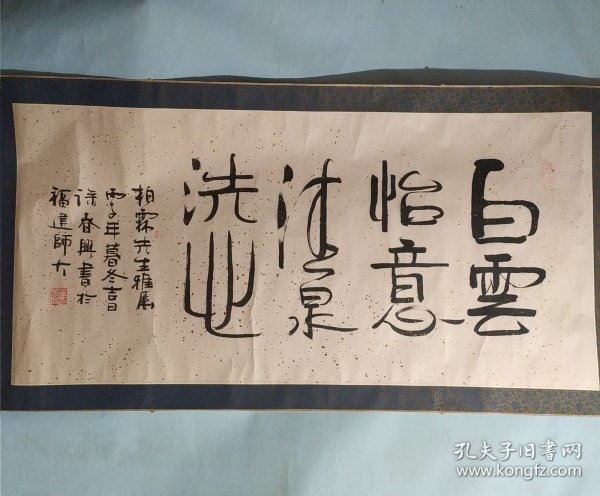 白雲
怡意
清泉
洗心
柏霖先生雅属
丙子年暮冬吉日
徐春興書於
福建師大
孔夫子旧书网
www.kongfz.com